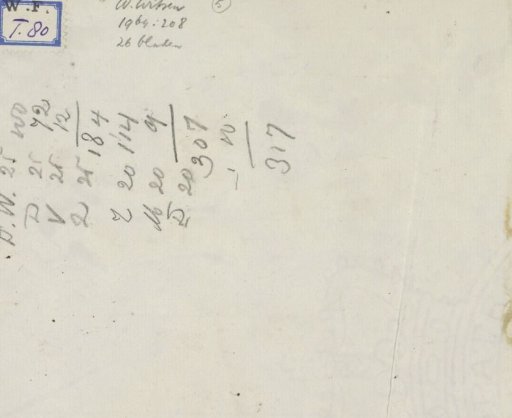 W.F.
T. 80
W. Witsen
1964:208
26 bladen
5
D.W. 25 100
D 25 72
V 25 12
Z 25 184
Z 20 114
M 20 9
D 20 307
- 10
317